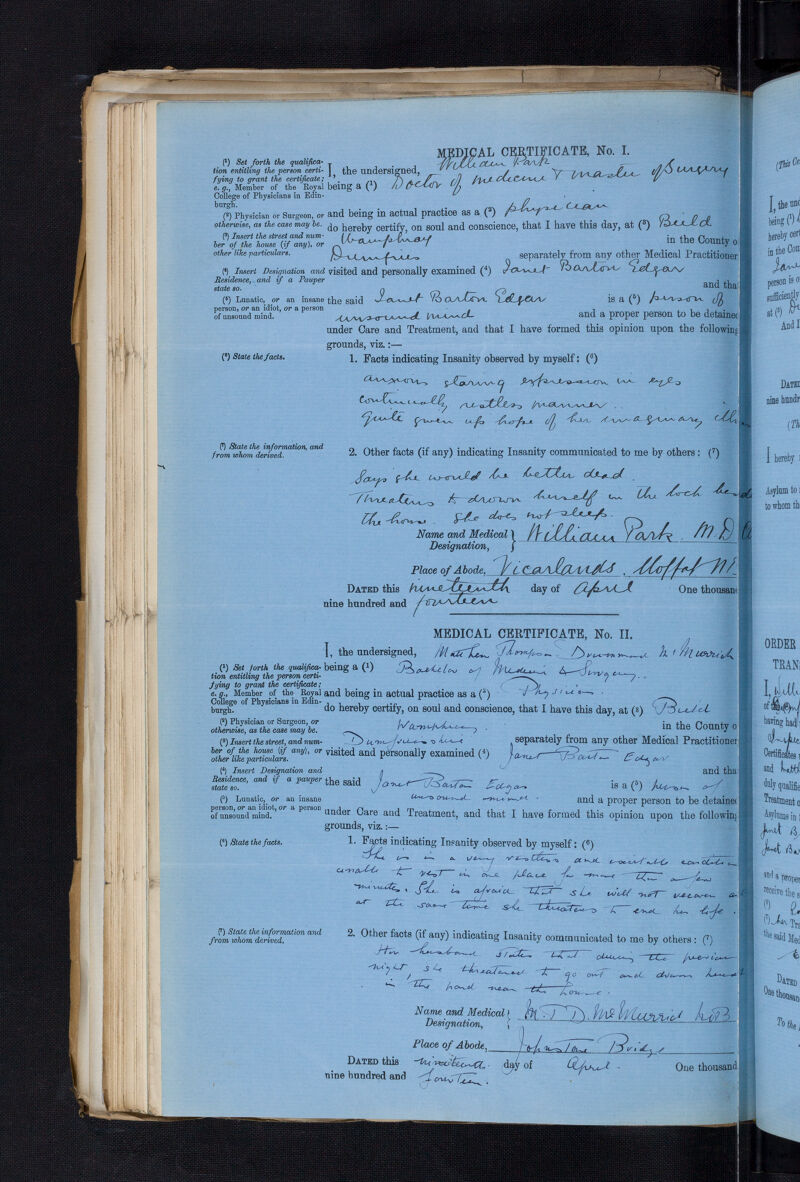 MEDICAL CERTIFICATE, No. I.
(¹) Set forth the qualifica-
tion entitling the person certi-
fying to grant the certificate;
e. g., Member of the Royal
College of Physicians in Edin-
burgh.
(²) Physician or Surgeon, or
otherwise, as the case may be.
(³) Insert the street and num-
ber of the house (if any), or
other like particulars.
(⁴) Insert Designation and
Residence, and if a Pauper
state so.
(⁵) Lunatic, or an insane
person, or an idiot, or a person
of unsound mind.
(⁶) State the facts.
(⁷) State the information, and
from whom derived.
I, the undersigned, William Park
being a (¹) Doctor of Medicine & Master of Surgery
and being in actual practice as a (²) physician
do hereby certify, on soul and conscience, that I have this day, at (³) Beild
Wamphray in the County o
Dumfries separately from any other Medical Practitioner
visited and personally examined (⁴) Janet Barton Edgar
and tha
the said Janet Barton Edgar is a (⁵) person of
unsound mind and a proper person to be detained
under Care and Treatment, and that I have formed this opinion upon the following
grounds, viz.:—
1. Facts indicating Insanity observed by myself: (⁶)
anxious staring expression in eyes
Continually restless manner.
Quite given up hope of her imaginary
2. Other facts (if any) indicating Insanity communicated to me by others: (⁷)
Says she would be better dead.
Threatens to drown herself in the loch
the house. She does not sleep.
Name and Medical Designation, William Park. M.D
Place of Abode, Vicarlands. Moffat
DATED this nineteenth day of April One thousand
nine hundred and fourteen
MEDICAL CERTIFICATE, No. II.
(¹) Set forth the qualifica-
tion entitling the person certi-
fying to grant the certificate;
e. g., Member of the Royal
College of Physicians in Edin-
burgh.
(²) Physician or Surgeon, or
otherwise, as the case may be.
(³) Insert the street, and num-
ber of the house (if any), or
other like particulars.
(⁴) Insert Designation and
Residence, and if a pauper
state so.
(⁵) Lunatic, or an insane
person, or an idiot, or a person
of unsound mind.
(⁶) State the facts.
(⁷) State the information and
from whom derived.
I, the undersigned, Thompson Drummond
being a (¹) Bachelor of Medicine & Surgery.
and being in actual practice as a (²) Physician.
do hereby certify, on soul and conscience, that I have this day, at (³) Beild
Wamphray. in the County o
Dumfries separately from any other Medical Practitioner
visited and personally examined (⁴) Janet Barton Edgar
and tha
the said Janet Barton Edgar is a (⁵) person of
unsound mind and a proper person to be detained
under Care and Treatment, and that I have formed this opinion upon the following
grounds, viz.:—
1. Facts indicating Insanity observed by myself: (⁶)
She is in a very restless and excitable condition
unable to rest in one place for more than a few
minutes. She is afraid that she will not recover
at the same time she threatens to end her life.
2. Other facts (if any) indicating Insanity communicated to me by others: (⁷)
Her husband states that during the previous
night, she threatened to go out and drown
in the pond near the house.
Name and Medical Designation, M.T.D.
Place of Abode, Johnstone Bridge
DATED this nineteenth day of April One thousand
nine hundred and fourteen.
I, the und
being (¹)
hereby cer
in the Cou
person is o
sufficiently
at (³)
And I
DATED
nine hundr
I hereby
Asylum to
to whom th
ORDER
TRAN
having had
Certificates
and
duly qualifie
Treatment o
Asylums in
and a proper
receive the s
the said Med
DATED
One thousan
To the